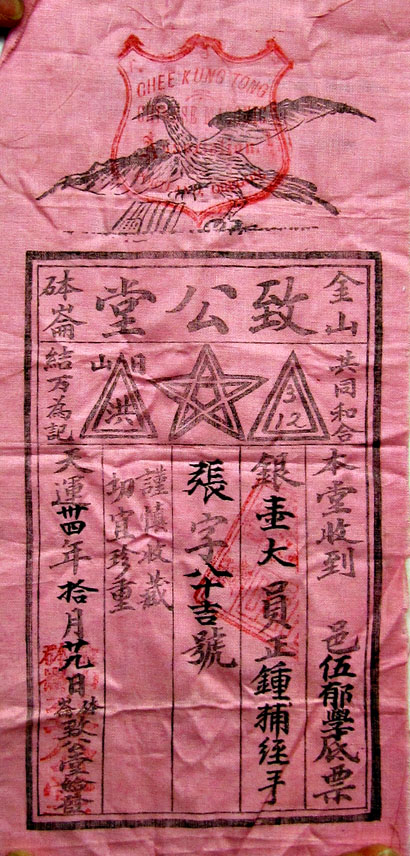 CHEE KUNG TONG
金山
致公堂
砵崙
共同和合
3 12
洪
結万為記
本堂收到 邑伍郁學底票
銀壹大員正鍾捕經手
張字 吉號
謹慎收藏
切宜珍重
天運卅四年拾月廿九日砵崙致公堂給發